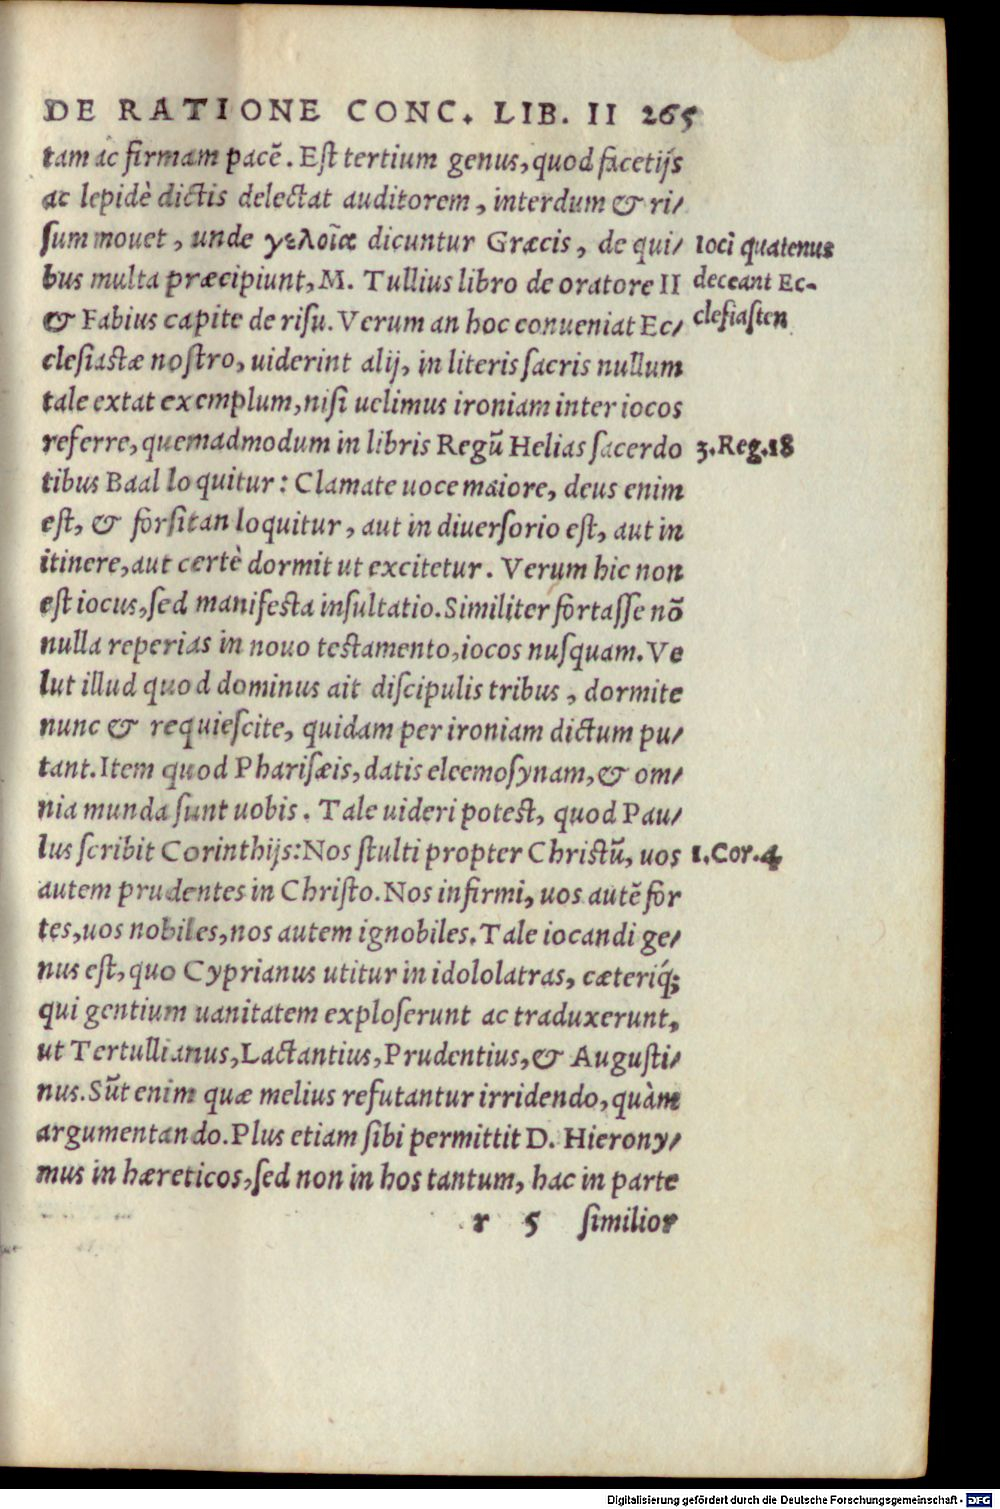 DE RATIONE CONC. LIB. II 265
tam ac firmam pacē. Est tertium genus, quod facetijs
ac lepidè dictis delectat auditorem, interdum & ri/
sum mouet, unde γελοῖα dicuntur Græcis, de qui/
Ioci quatenus
bus multa præcipiunt, M. Tullius libro de oratore II
deceant Ec-
& Fabius capite de risu. Verum an hoc conueniat Ec/
clesiasten
clesiastæ nostro, uiderint alij, in literis sacris nullum
tale extat exemplum, nisi uelimus ironiam inter iocos
referre, quemadmodum in libris Regū Helias sacerdo
3. Reg. 18
tibus Baal loquitur: Clamate uoce maiore, deus enim
est, & forsitan loquitur, aut in diuersorio est, aut in
itinere, aut certè dormit ut excitetur. Verum hic non
est iocus, sed manifesta insultatio. Similiter fortasse nō
nulla reperias in nouo testamento, iocos nusquam. Ve
lut illud quod dominus ait discipulis tribus, dormite
nunc & requiescite, quidam per ironiam dictum pu/
tant. Item quod Pharisæis, datis eleemosynam, & om/
nia munda sunt uobis. Tale uideri potest, quod Pau/
lus scribit Corinthijs: Nos stulti propter Christū, uos
1. Cor. 4
autem prudentes in Christo. Nos infirmi, uos autē for
tes, uos nobiles, nos autem ignobiles. Tale iocandi ge/
nus est, quo Cyprianus utitur in idololatras, cæteriq́;
qui gentium uanitatem exploserunt ac traduxerunt,
ut Tertullianus, Lactantius, Prudentius, & Augusti/
nus. Sūt enim quæ melius refutantur irridendo, quàm
argumentando. Plus etiam sibi permittit D. Hierony/
mus in hæreticos, sed non in hos tantum, hac in parte
r 5 similior
Digitalisierung gefördert durch die Deutsche Forschungsgemeinschaft - DFG